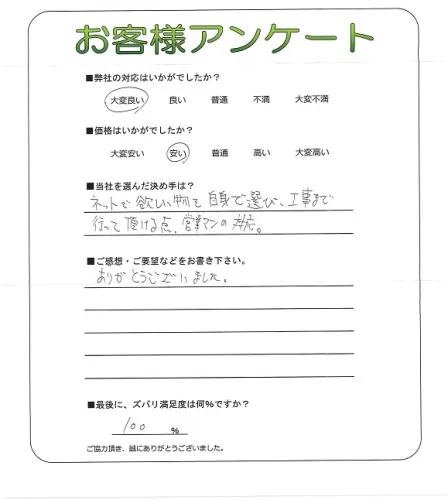 お客様アンケート
■弊社の対応はいかがでしたか？
大変良い 良い 普通 不満 大変不満
■価格はいかがでしたか？
大変安い 安い 普通 高い 大変高い
■当社を選んだ決め手は？
ネットで欲しい物を自身で選び、工事まで
行って頂ける点、営業マンの対応。
■ご感想・ご要望などをお書き下さい。
ありがとうございました。
■最後に、ズバリ満足度は何%ですか？
100 %
ご協力頂き、誠にありがとうございました。